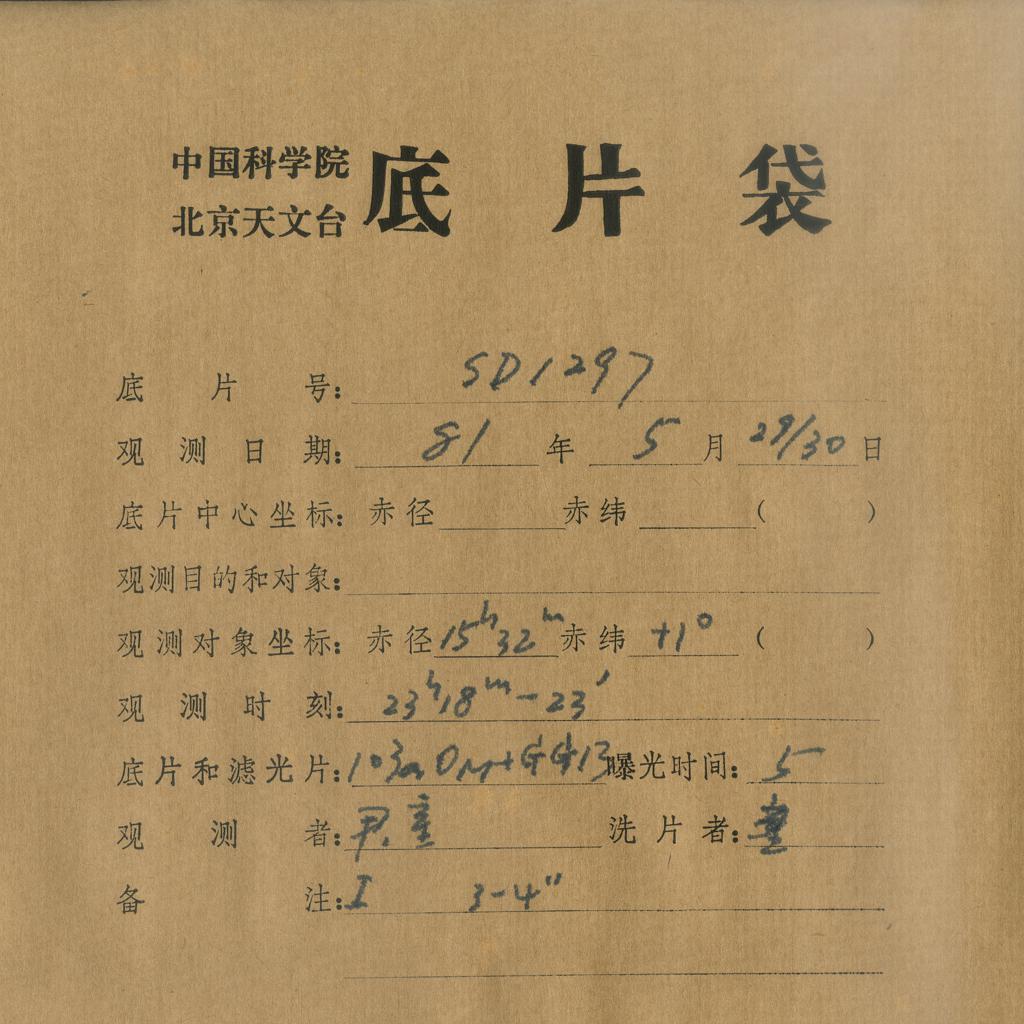 中国科学院
北京天文台
底片袋
底片号: SD1297
观测日期: 81 年 5 月 29/30 日
底片中心坐标: 赤径 赤纬 ( )
观测目的和对象:
观测对象坐标: 赤径 15h32m 赤纬 +1° ( )
观测时刻: 23h18m-23′
底片和滤光片: 103aO +GG13 曝光时间: 5
观测者: 童 洗片者: 童
备注: I 3-4″